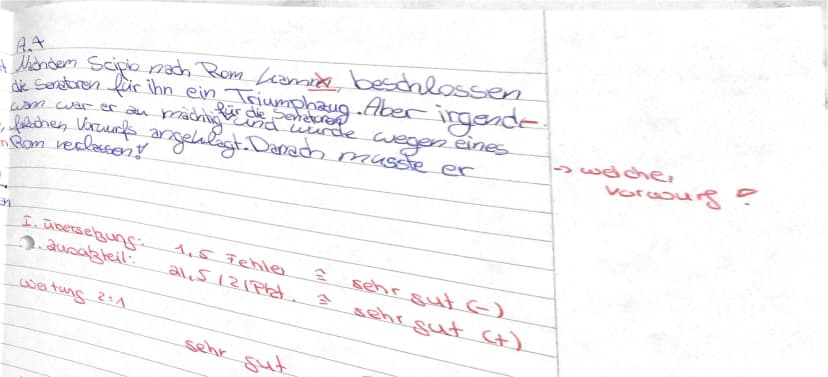 A.4
Nachdem Scipio nach Rom kam, beschlossen
die Senatoren für ihn ein Triumphzug. Aber irgend-
wann war er zu mächtig für die Senatoren
und wurde wegen eines
falschen Vorwurfs angeklagt. Danach musste er
Rom verlassen!
→ welcher
Vorwurf?
I. Übersetzung: 1,5 Fehler ≙ sehr gut (-)
Zusatzteil: 21,5 / 21 Pkt. ≙ sehr gut (+)
Wertung 2:1
sehr gut